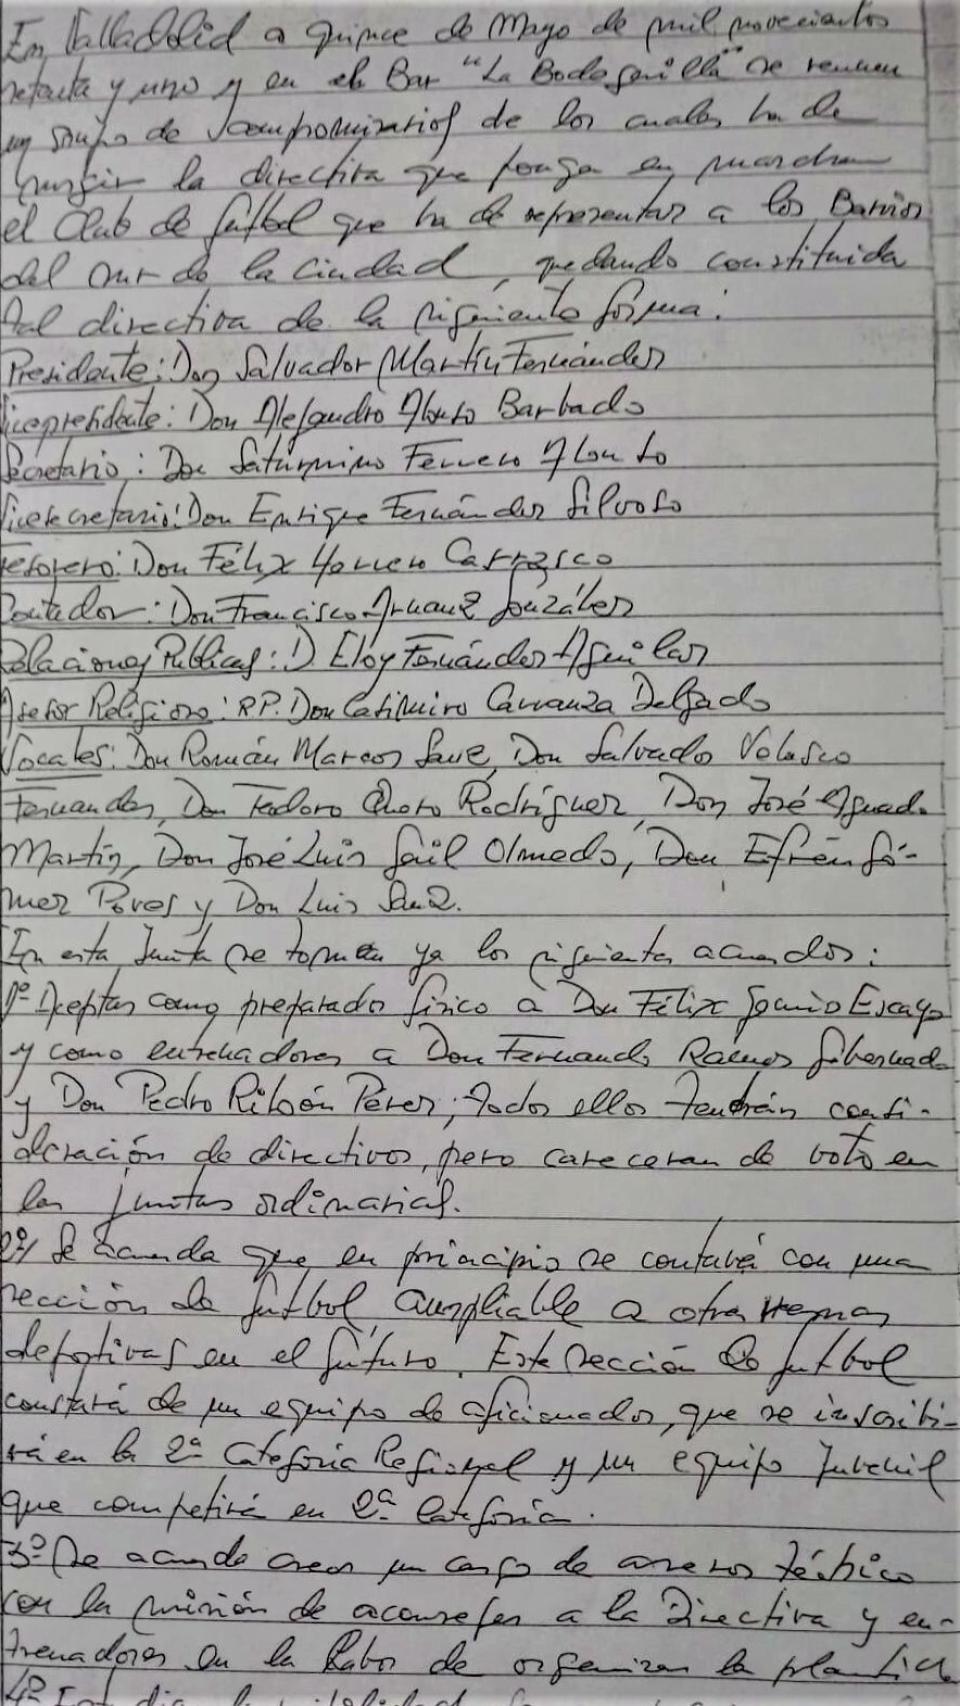 En Valladolid a quince de Mayo de mil novecientos
setenta y uno y en el Bar "La Bodeguilla" se reunen
un grupo de compromisarios de los cuales ha de
surgir la directiva que ponga en marcha
el Club de fútbol que ha de representar a los Barrios
del sur de la ciudad, quedando constituida
tal directiva de la siguiente forma:
Presidente: Don Salvador Martín Fernández
Vicepresidente: Don Alejandro Alonso Barbado
Secretario: Don Saturnino Ferrero Alonso
Vicesecretario: Don Enrique Fernández Silvoso
Tesorero: Don Félix Herrero Carrasco
Contador: Don Francisco Arnanz González
Relaciones Públicas: D. Eloy Fernández Aguilar
Asesor Religioso: R.P. Don Casimiro Carranza Delgado
Vocales: Don Román Marcos Sanz, Don Salvado Velasco
Fernandez, Don Teodoro Otero Rodríguez, Don José Aguado
Martín, Don José Luis Gail Olmedo, Don Efrén Gó-
mez Poves y Don Luis Sanz.
En esta Junta se toman ya los siguientes acuerdos:
1º Aceptar como preparado físico a Don Félix Escayo
y como entrenadores a Don Fernando Ramos Gibernado
y Don Pedro Ribón Pérez; todos ellos tendrán consi-
deración de directivos, pero careceran de voto en
las juntas ordinarias.
2º/ Se acuerda que en principio se contará con una
sección de fútbol, ampliable a otras ramas
deportivas en el futuro. Esta sección de futbol
constará de un equipo de aficionados, que se inscribi-
rá en la 2ª Categoría Regional y un equipo Juvenil
que competirá en 2ª Categoría.
3º Se acuerda crear un cargo de asesor técnico
con la misión de aconsejar a la Directiva y en-
trenadores en la labor de organizar la plantilla